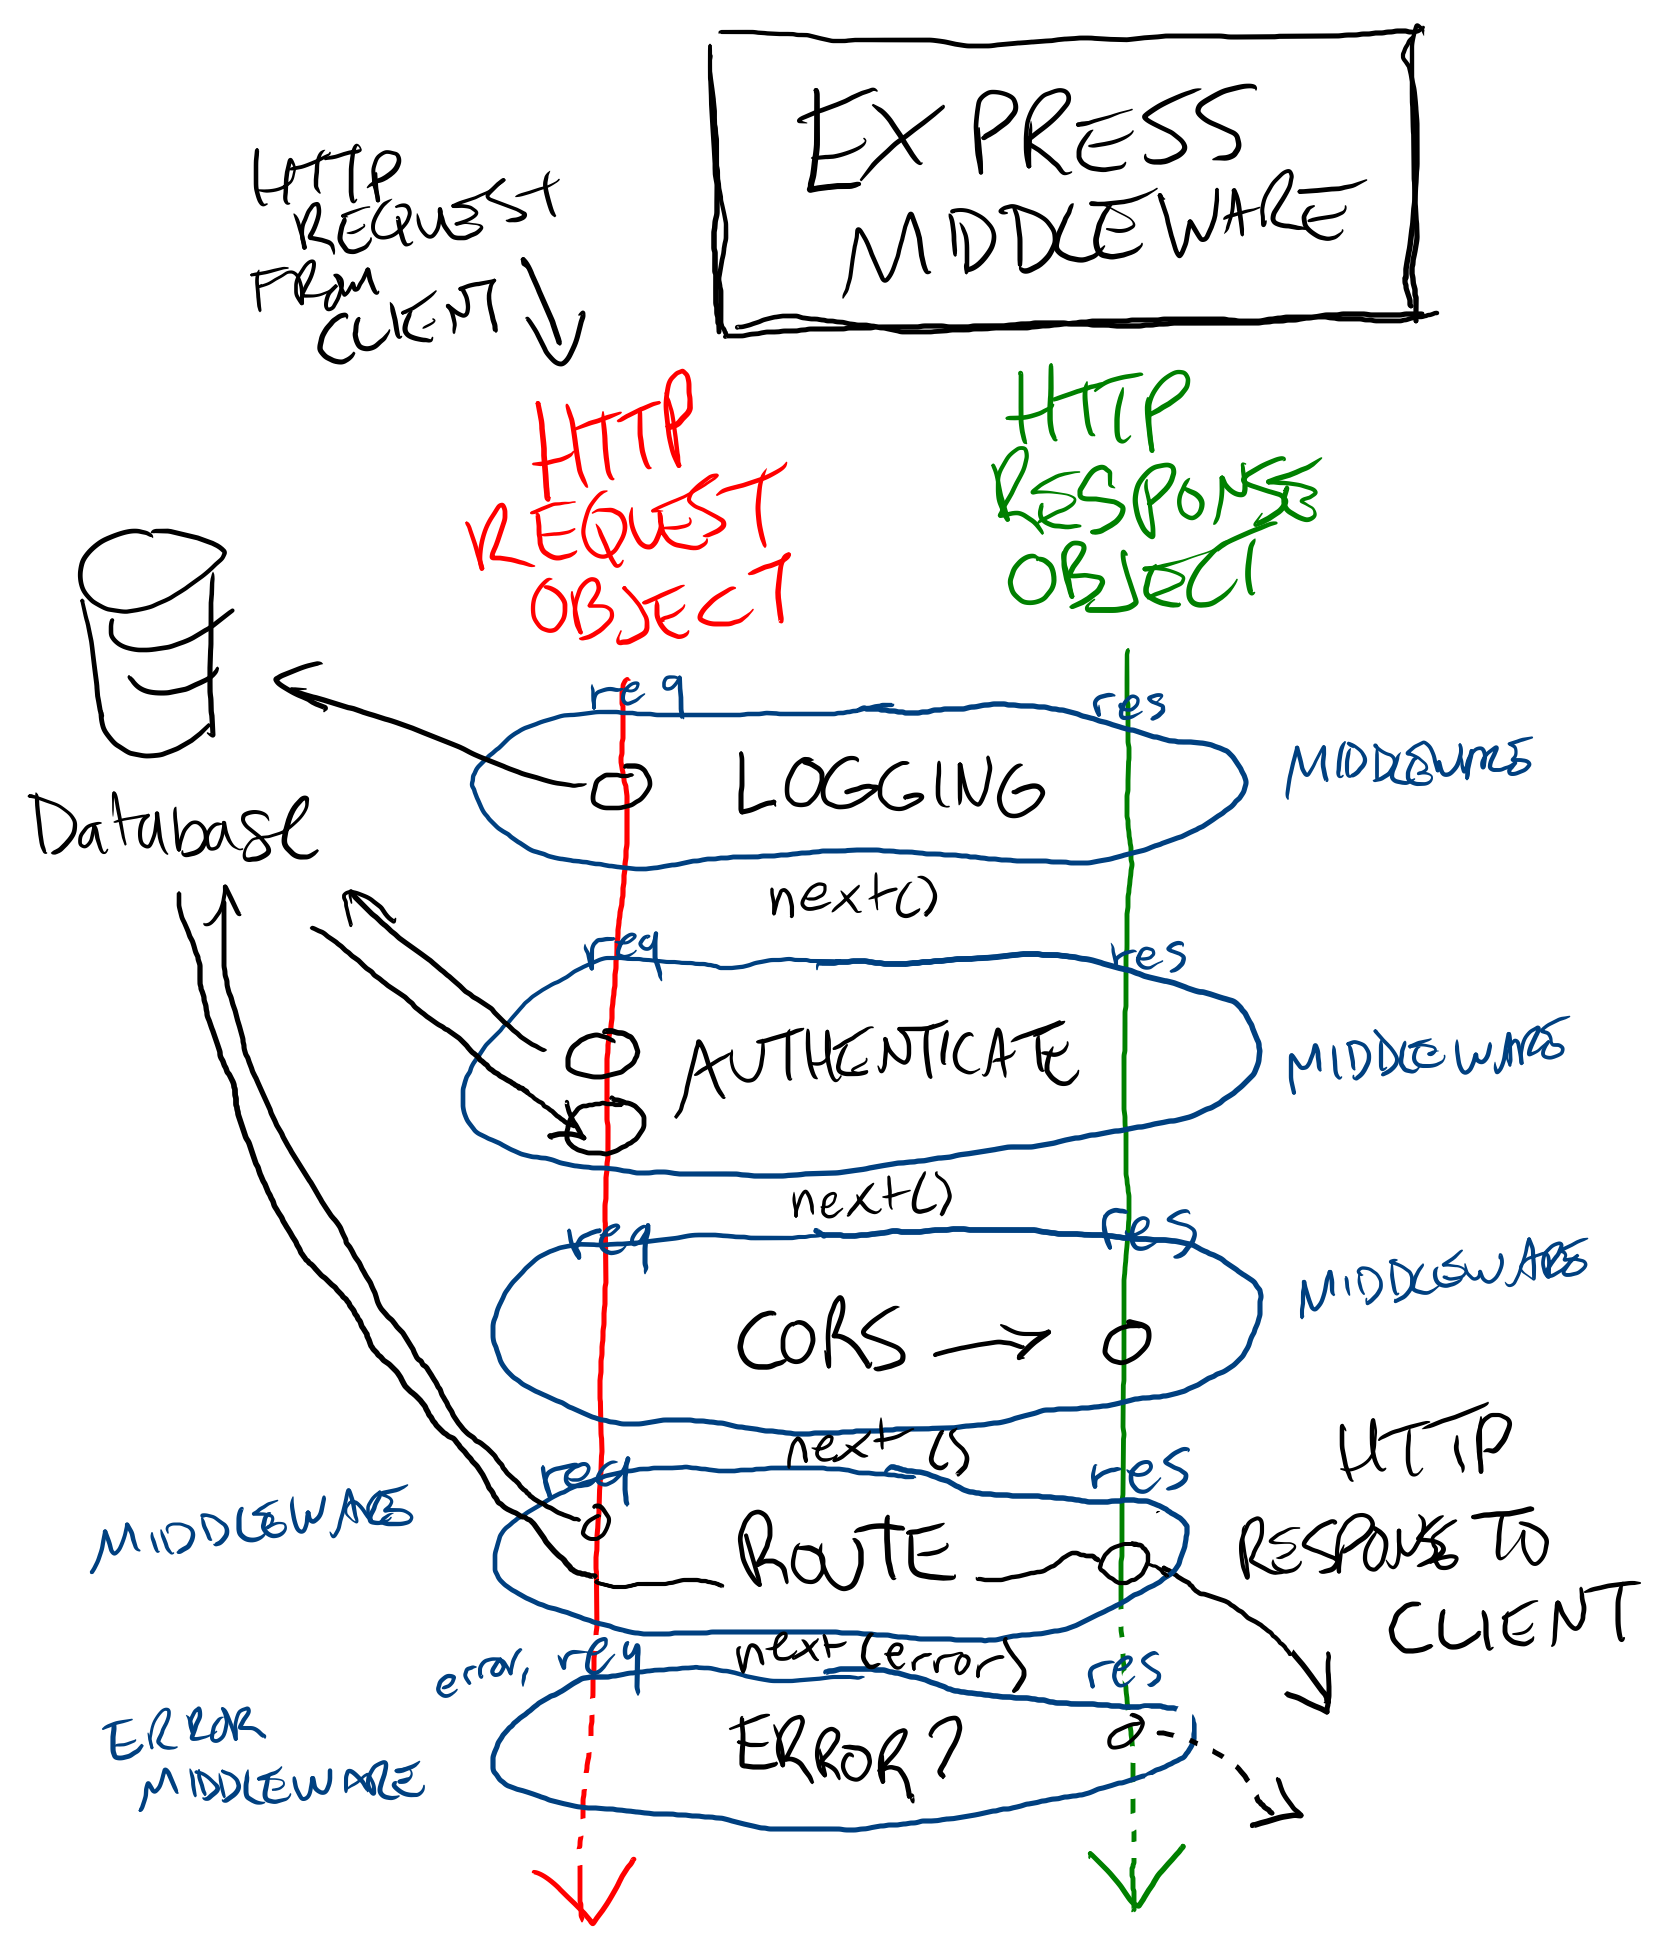 EXPRESS
MIDDLEWARE
HTTP
REQUEST
FROM
CLIENT
HTTP
REQUEST
OBJECT
HTTP
RESPONSE
OBJECT
req
res
LOGGING
MIDDLEWARE
Database
next()
req
res
AUTHENTICATE
MIDDLEWARE
next()
req
res
CORS
MIDDLEWARE
next()
req
res
MIDDLEWARE
ROUTE
HTTP
RESPONSE TO
CLIENT
next(error)
error, req
res
ERROR
MIDDLEWARE
ERROR?